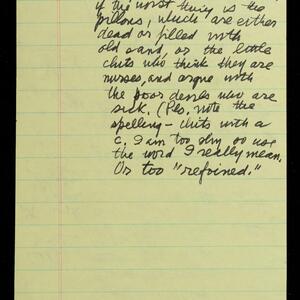 if the worst thing is the
pillows, which are either
dead or filled with
old sand, or the little
chits who think they are
nurses, and argue with
the poor devils who are
sick. (Pls. note the
spelling – chits with a
c. I am too shy to use
the word I really mean.
Or too "refoined."